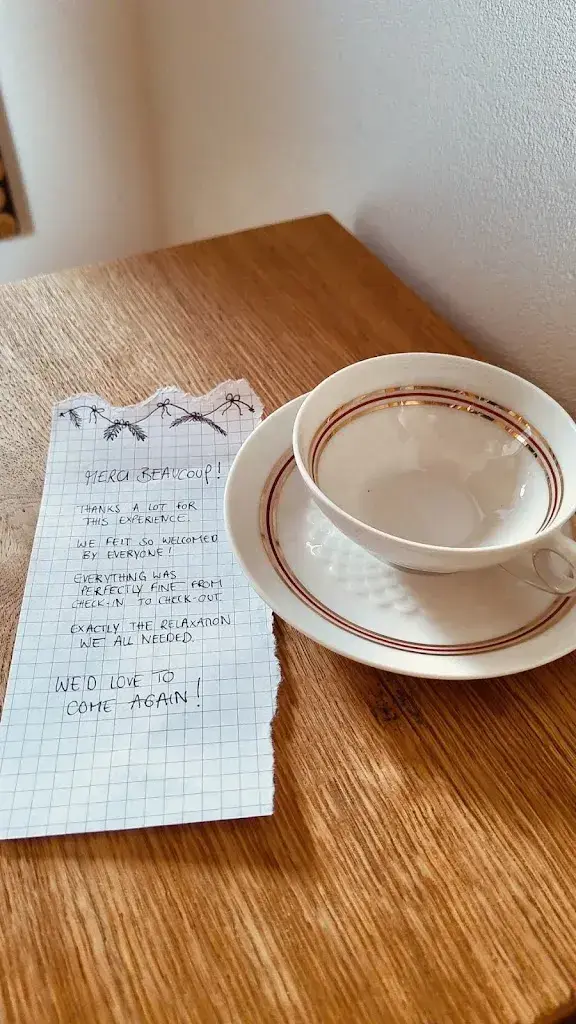 MERCI BEAUCOUP!
THANKS A LOT FOR
THIS EXPERIENCE.
WE FELT SO WELCOMED
BY EVERYONE!
EVERYTHING WAS
PERFECTLY FINE FROM
CHECK-IN TO CHECK-OUT.
EXACTLY THE RELAXATION
WE ALL NEEDED.
WE'D LOVE TO
COME AGAIN!